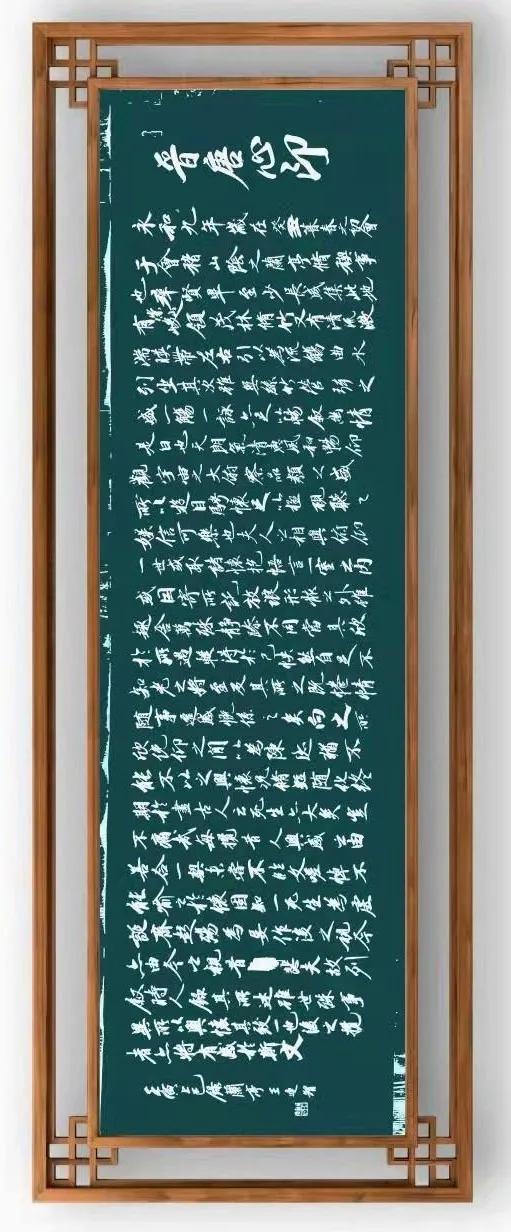 晋唐心印
永和九年歲在癸丑暮春之初會
于會稽山陰之蘭亭脩禊事
也羣賢畢至少長咸集此地
有崇山峻領茂林脩竹又有清流激
湍暎帶左右引以為流觴曲水
列坐其次雖無絲竹管弦之
盛一觴一詠亦足以暢敘幽情
是日也天朗氣清惠風和暢仰
觀宇宙之大俯察品類之盛
所以遊目騁懷足以極視聽之
娛信可樂也夫人之相與俯仰
一世或取諸懷抱悟言一室之內
或因寄所託放浪形骸之外雖
趣舍萬殊靜躁不同當其欣
於所遇暫得於己快然自足不
知老之將至及其所之既惓情
隨事遷感慨係之矣向之所
欣俛仰之間以為陳迹猶不
能不以之興懷況脩短隨化終
期於盡古人云死生亦大矣豈
不痛哉每攬昔人興感之由
若合一契未嘗不臨文嗟悼不
能喻之於懷固知一死生為虛
誕齊彭殤為妄作後之視今
亦由今之視昔悲夫故列
敘時人錄其所述雖世殊事
異所以興懷其致一也後之攬
者亦將有感於斯文
壬寅上巳錄蘭亭王